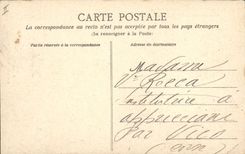 CARTE POSTALE
La correspondance au recto n'est pas acceptée par tous les pays étrangers
(Se renseigner à la Poste)
Partie réservée à la correspondance
Adresse du destinataire
Madame
Vve Rocca
Institutrice à
Appricciani
Par Vico